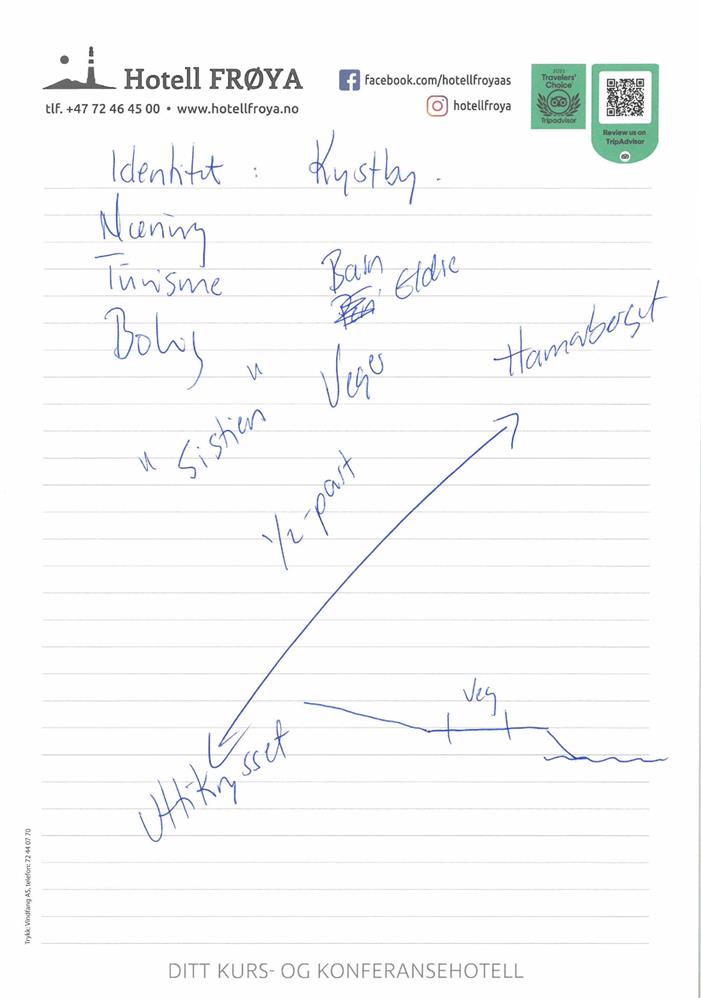 Hotell FRØYA
tlf. +47 72 46 45 00 • www.hotellfroya.no
facebook.com/hotellfroyaas
hotellfroya
2021
Travelers'
Choice
Tripadvisor
Review us on
TripAdvisor
Identitet : Kystby.
Næring
Turisme
Barn, Eldre
Bolig
Veger
Hamarberget
"Sistien"
1/2-part
Veg
Uttikrysset
Trykk: Vindfang AS, telefon: 72 44 07 70
DITT KURS- OG KONFERANSEHOTELL